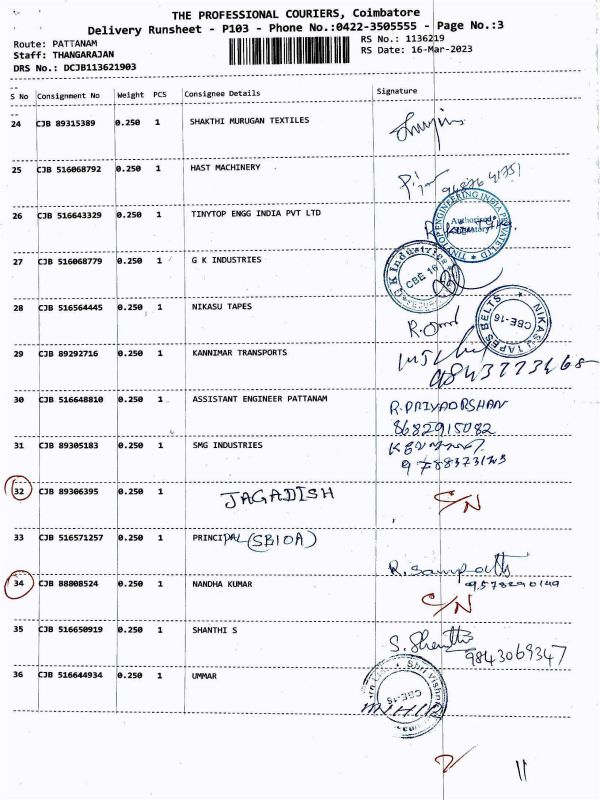 THE PROFESSIONAL COURIERS, Coimbatore
Delivery Runsheet - P103 - Phone No.:0422-3505555 - Page No.:3
Route: PATTANAM RS No.: 1136219
Staff: THANGARAJAN RS Date: 16-Mar-2023
DRS No.: DCJB113621903
S No Consignment No Weight PCS Consignee Details Signature
24 CJB 89315389 0.250 1 SHAKTHI MURUGAN TEXTILES
25 CJB 516068792 0.250 1 HAST MACHINERY
26 CJB 516643329 0.250 1 TINYTOP ENGG INDIA PVT LTD
TINYTOP ENGINEERING INDIA PRIVATE LTD
Authorised Signatory
27 CJB 516068779 0.250 1 G K INDUSTRIES
G K Industries CBE 16
28 CJB 516564445 0.250 1 NIKASU TAPES
NIKASU TAPES BELTS CBE-16
29 CJB 89292716 0.250 1 KANNIMAR TRANSPORTS
9843773468
30 CJB 516648810 0.250 1 ASSISTANT ENGINEER PATTANAM R.PRIYADRSHAN
8682915082
31 CJB 89305183 0.250 1 SMG INDUSTRIES
32 CJB 89306395 0.250 1 JAGADISH C/N
33 CJB 516571257 0.250 1 PRINCIPAL (SBIOA)
R. Sampath
34 CJB 88808524 0.250 1 NANDHA KUMAR
C/N
35 CJB 516650919 0.250 1 SHANTHI S S. Shanthi
9843069347
36 CJB 516644934 0.250 1 UMMAR
CBE-15
11